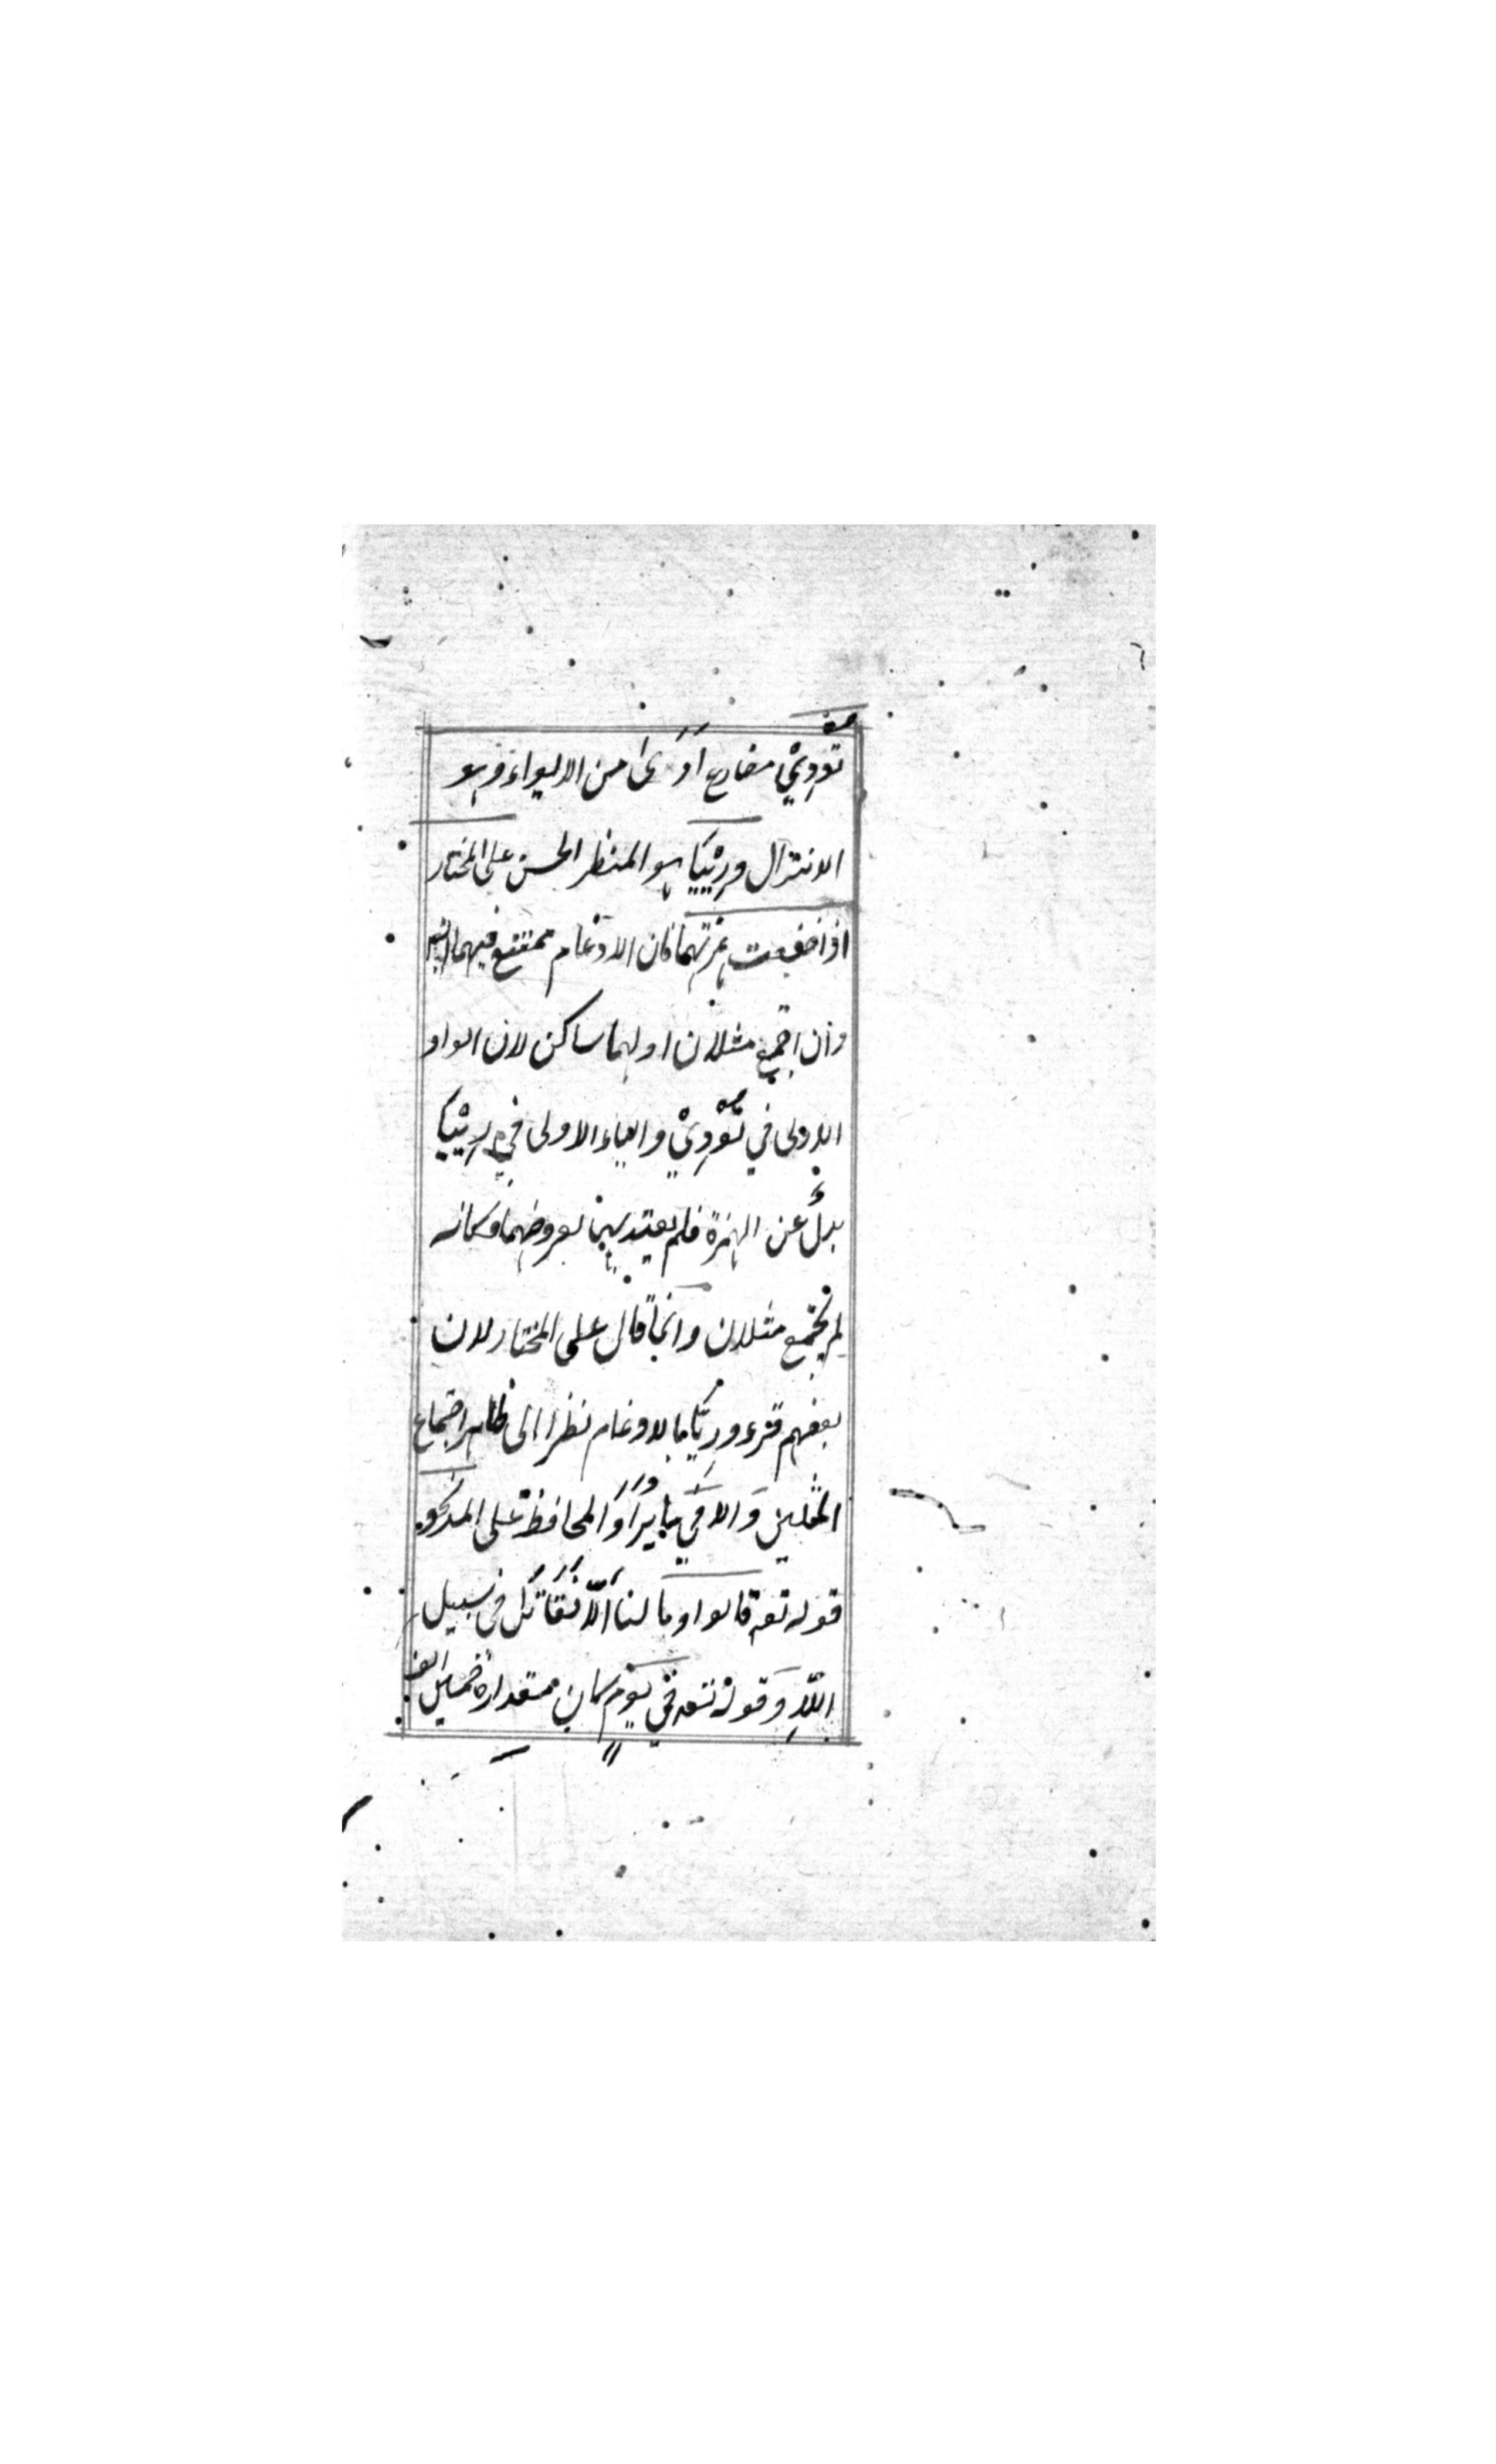 تؤوي مضارع اوى من الايواء وهو
الانتزال ورئيا هو المنظر الحسن على المختار
اذا خففت همزتهما فان الادغام ممتنع فيهما
وان اجتمع مثلان اولهما ساكن لان الواو
الاولى في تُؤْوِيْ والياء الاولى في رِئْيًا
بدلٌ عن الهمزة فلم يعتد بهما لعروضهما وكانه
لم يجتمع مثلان وانما قال على المختار لان
بعضهم قرء ورِيًّا بالادغام نظرا الى ظاهر اجتماع
المثلين وَالا في المحافظة على المد نحو
قوله تعه قالوا وما لنا اَلَّا نُقَاتِلَ في سبيل
اللّٰهِ وَقوله تعه في يَوْمٍ كان مقداره خمسين الف